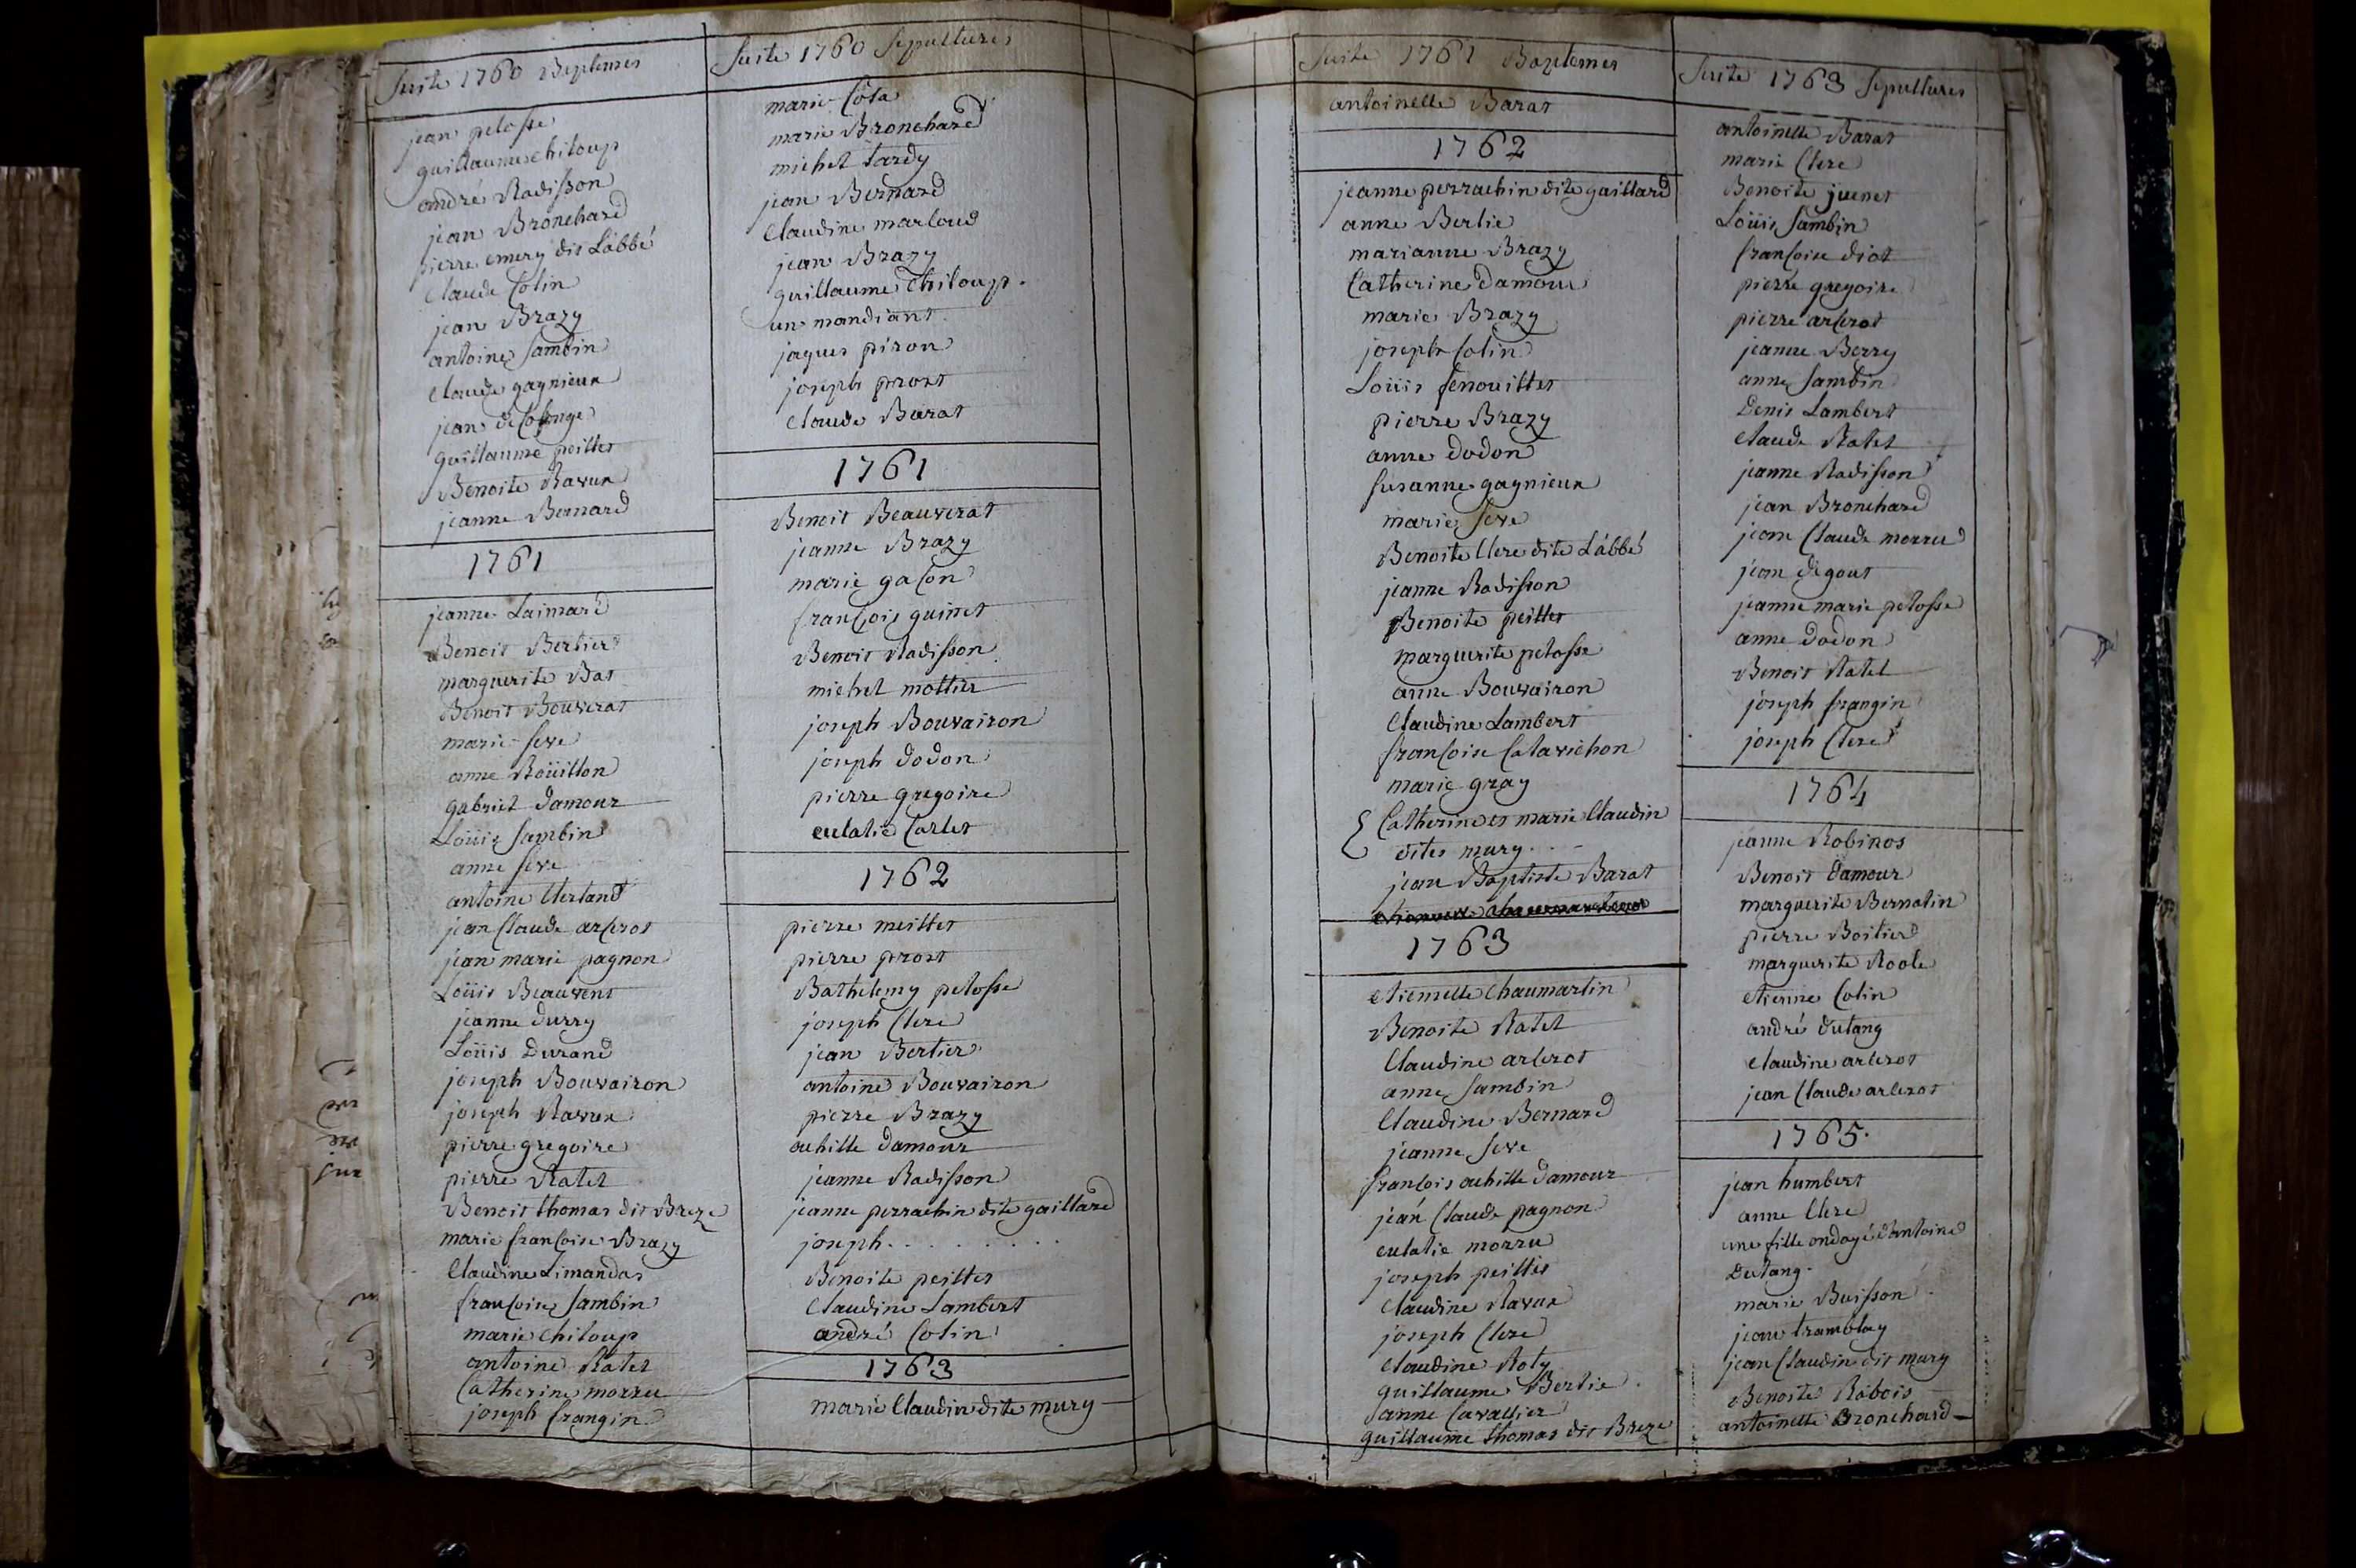 Suite 1760 Baptemes
jean pelosse
guillaume chiloup
andré Radisson
jean Bronchard
pierre emery dit Labbé
Claude Colin
jean Brazy
antoine Sambin
Claude gagnieux
jean de Colonge
guillaume peillet
Benoite Ravux
jeanne Bernard
1761
jeanne Laimard
Benoit Bertier
marguerite Bas
Benoit Bouverat
marie seve
anne Roüillon
gabriel Damour
Loüis Sambin
anne seve
antoine Clerland
jean Claude arlerot
jean marie pagnon
Loüis Beauvent
jeanne Durry
Loüis Durand
joseph Bouvairon
joseph Ravux
pierre gregoire
pierre Ratel
Benoit thomas dit Breze
marie francoise Brazy
Claudine Limandas
francoise Sambin
marie chiloup
antoine Ratel
Catherine morru
joseph frangin
Suite 1760 Sepultures
marie Cota
marie Bronchard
michel tardy
jean Bernard
Claudine marloud
jean Brazy
guillaume chiloup.
un mandiant
jaques piron
joseph prost
Claude Barat
1761
Benoit Beauverat
jeanne Brazy
marie gacon
francois guinet
Benoit Radisson
michel mottin
joseph Bouvairon
joseph dodon
pierre gregoire
eulalie Carlet
1762
pierre meillet
pierre prost
Bathelemy pelosse
joseph Clere
jean Bertier
antoine Bouvairon
pierre Brazy
achille Damour
jeanne Radisson
jeanne perrachin dite gaillard
joseph . . . . . . . . .
Benoite peillet
Claudine Lambert
andré Colin
1763
marie Claudin dite mury
Suite 1761 Baptemes
antoinette Barat
1762
jeanne perrachin dite gaillard
anne Berlie
marianne Brazy
Catherine Damour
marie Brazy
joseph Colin
Loüis fenouillet
pierre Brazy
anne dodon
susanne gagnieux
marie seve
Benoite Clere dite Labbé
jeanne Radisson
Benoite peillet
marguerite pelosse
anne Bouvairon
Claudine Lambert
francoise Catavichon
marie gray
Catherine et marie Claudin
dites mury . . -
jean Baptiste Barat
1763
etiennette Chaumartin
Benoite Ratel
Claudine arlerot
anne Sambin
Claudine Bernard
jeanne seve
francois achille Damour
jean Claude pagnon
eulalie morru
joseph peillet
Claudine Ravux
joseph Clere
Claudine Roty
guillaume Berlie
anne Cavallier
guillaume thomas dit Breze
Suite 1763 Sepultures
antoinette Barat
marie Clere
Benoite juenet
Loüis Sambin
francoise diot
pierre gregoire
pierre arlerot
jeanne Berry
anne Sambin
Denis Lambert
Claude Ratel
jeanne Radisson
jean Bronchard
jean Claude morru
jean degout
jeanne marie pelosse
anne dodon
Benoit Ratel
joseph frangin
joseph Clere
1764
jeanne Robinos
Benoit Damour
marguerite Bernalin
pierre Boitier
marguerite Roole
etienne Colin
andré Dutang
Claudine arlerot
jean Claude arlerot
1765.
jean humbert
anne Clere
une fille ondoyé d'antoine
Dutang.
marie Buisson
jean tramblay
jean Claudin dit mury
Benoite Rabois
antoinette Bronchard